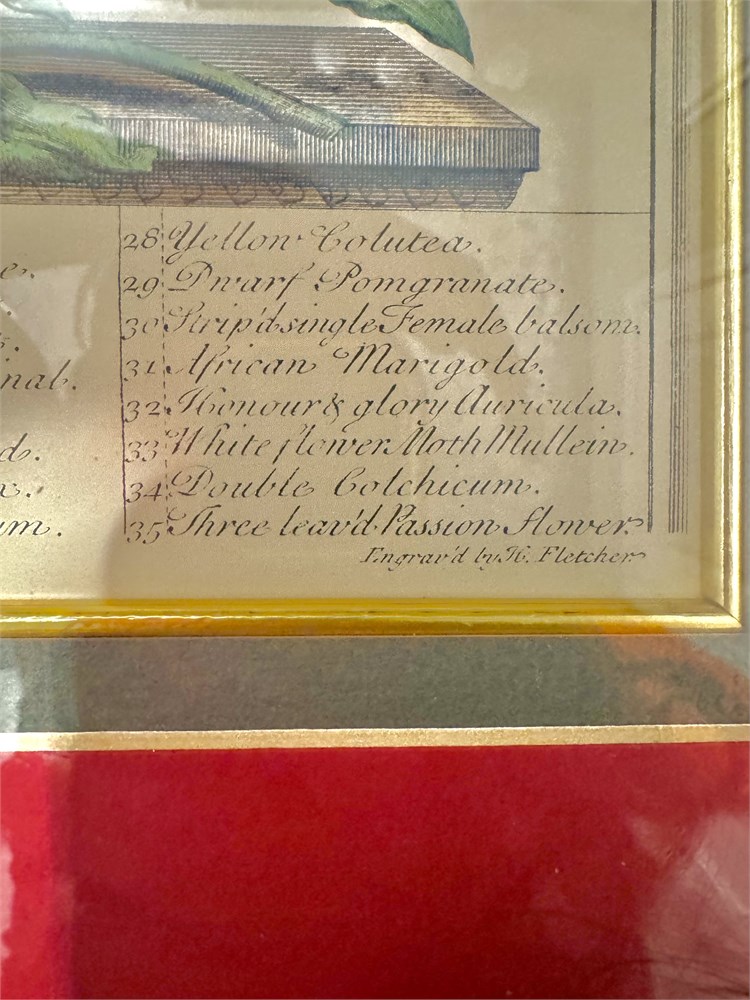 28 Yellow Colutea.
29 Dwarf Pomgranate.
30 Strip'd single Female balsom.
31 African Marigold.
32 Honour & glory Auricula.
33 White flower Moth Mullein.
34 Double Colchicum.
35 Three leav'd Passion flower.
Engrav'd by H. Fletcher.